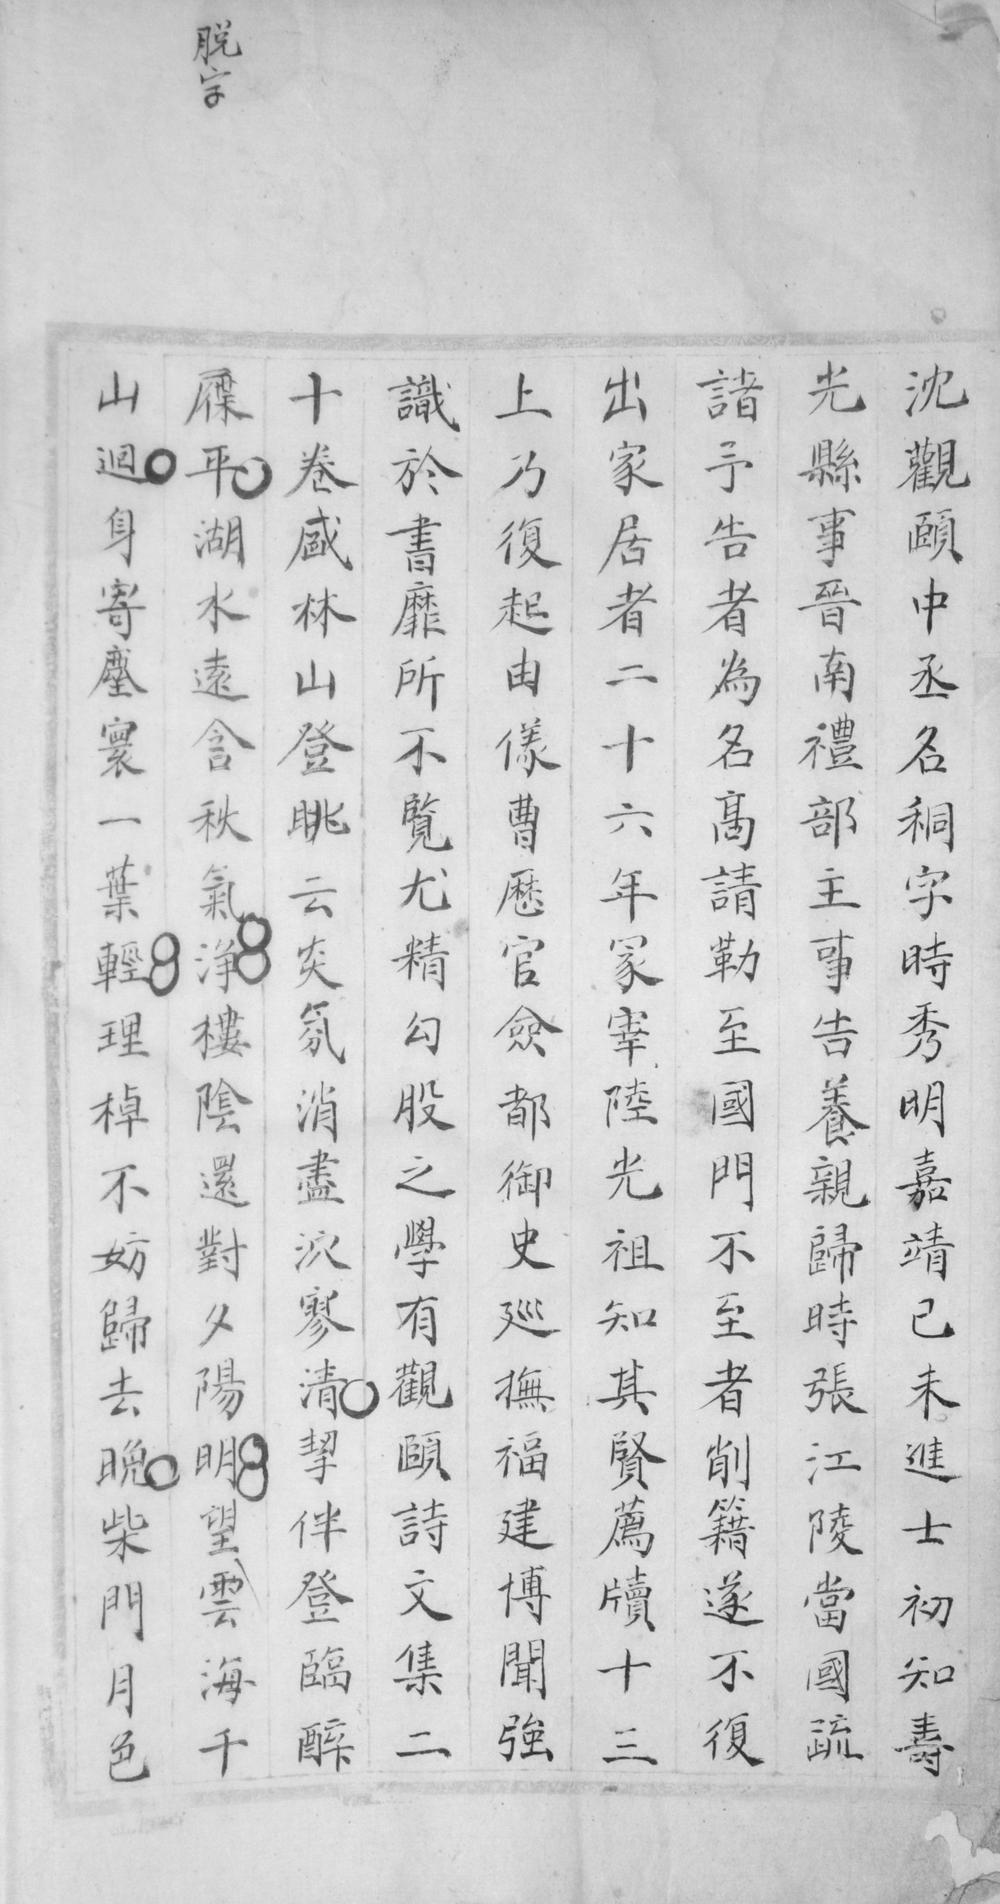 脫字
沈觀頤中丞名秱字時秀明嘉靖己未進士初知壽
光縣事晉南禮部主事告養親歸時張江陵當國疏
請予告者為名高請勒至國門不至者削籍遂不復
出家居者二十六年冢宰陸光祖知其賢薦牘十三
上乃復起由儀曹歷官僉都御史巡撫福建博聞強
識於書靡所不覽尤精勾股之學有觀頤詩文集二
十卷感林山登眺云炎氛消盡泬寥清挈伴登臨醉
屧平湖水遠含秋氣淨樓陰還對夕陽明望雲海千
山迴身寄塵寰一葉輕理棹不妨歸去晚柴門月色